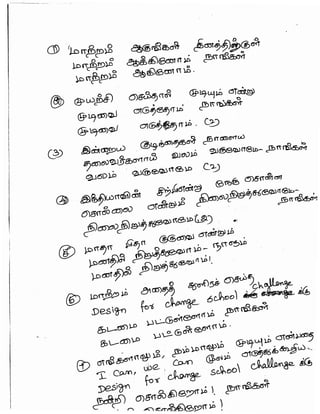 (1) மாற்றம் ஆகுங்கள் இனத்திற்குள்
மாற்றம் ஆக்கினோம் நாங்கள்
மாற்றம் ஆகினோம்.
(2) முயற்சி செய்தால் முடியும் என்று
முடிவை எடுத்தோம் நாங்கள்
முடிவை எடுத்தோம். (2)
(3) இன்றைய குழந்தைகள் நாளைய
தலைவர்களாய் வலம் வருவோமே - நாங்கள்
வலம் வருவோமே (2)
(4) இந்தியாவின் சிற்பி என்று
சொல்லை என்றும் நிலைநிறுத்துவோமே - நாங்கள்
நிலைநிறுத்துவோமே (2)
(5) மாதா பிதா குருவை என்றும்
மனதில் நிறுத்துவோம் - நாளும்
மனதில் நிறுத்துவோம்!
(6) மாற்றம் அதைத் செய்த
Design for change school challenge க்கு
கடமை பட்டுள்ளோம் நாங்கள்
கடமை பட்டுள்ளோம்.
(7) எங்களாலும், நம்மாலும் முடியும் என்பதை
I can, we can மூலம் எடுத்துக்கூறிய
Design for change school challenge க்கு
நன்றி சொல்கிறோம்! நாங்கள்
சொல்கிறோம்!